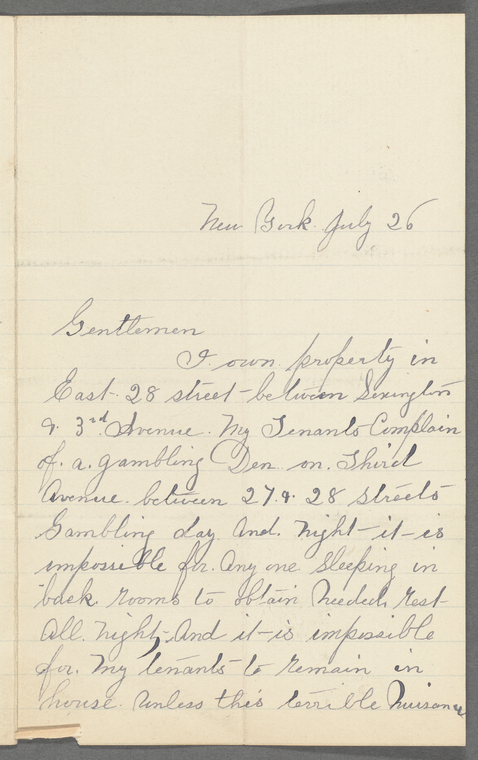 New York July 26
Gentlemen
I own property in
East 28 street between Lexington
& 3rd Avenue. My Tenants Complain
of a gambling Den on Third
Avenue between 27 & 28 streets
Gambling day and Night it is
impossible for any one sleeping in
back rooms to obtain needed rest
all night, and it is impossible
for my tenants to remain in
house unless this terrible Nuisance